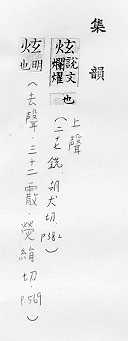 集韻
炫 說文爛燿也
上聲
(二十七銑 胡犬切. P382
炫 明也
(去聲. 三十二霰. 熒絹切. P.569)